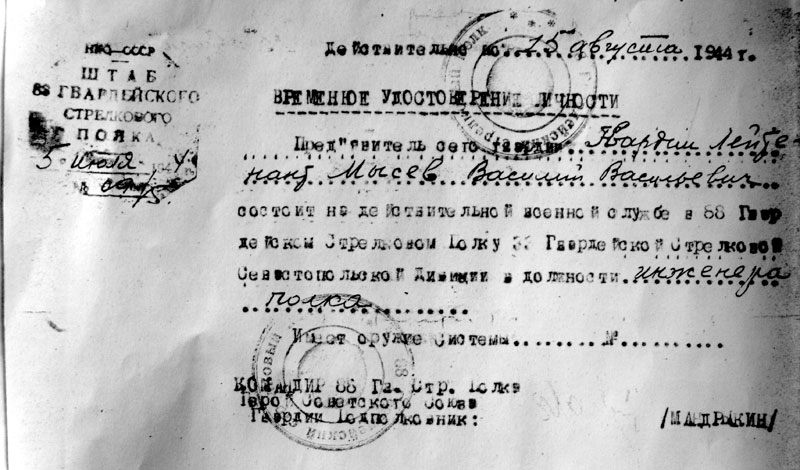 НКО—СССР
ШТАБ
88 ГВАРДЕЙСКОГО
СТРЕЛКОВОГО
ПОЛКА
5 июля 1944
№
Действительно по 25 августа 1944 г.
ВРЕМЕННОЕ УДОСТОВЕРЕНИЕ ЛИЧНОСТИ
Пред"явитель сего гвардии Гвардии Лейте-
нант Мысев Василий Васильевич
состоит на действительной военной службе в 88 Гвар
дейском Стрелковом Полку 33 Гвардейской Стрелковой
Севастопольской Дивизии в должности инженера
полка
Имеет оружие Системы........№..........
КОМАНДИР 88 Гв. Стр. Полка
Герой Советского Союза
Гвардии Подполковник: /МАНДРЫКИН/